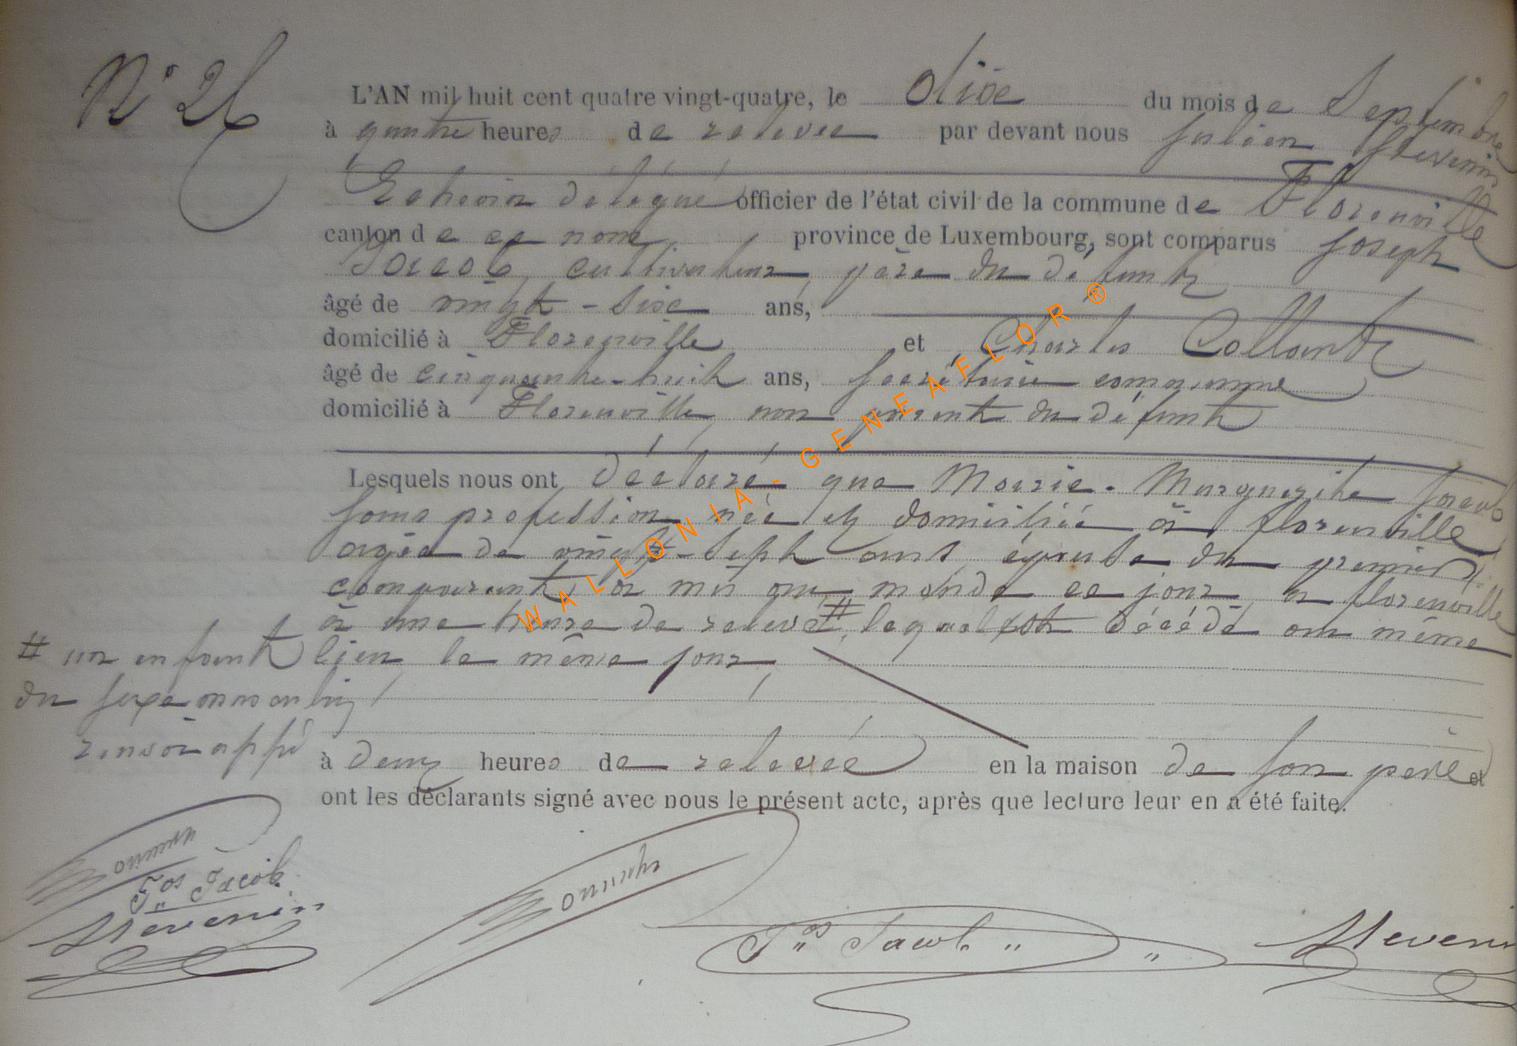 N° 26
L'AN mil huit cent quatre vingt-quatre, le dix du mois de Septembre
à quatre heures de relevée par devant nous Julien Stevenin
Echevin délégué officier de l'état civil de la commune de Florenville
canton de ce nom province de Luxembourg, sont comparus Joseph
Jacob, cultivateur, père du défunt
âgé de vingt-six ans,
domicilié à Florenville et Charles
âgé de cinquante-huit ans, secrétaire communal
domicilié à Florenville, non parent du défunt
Lesquels nous ont déclaré que Marie-Marguerite Jacob
sans profession née et domiciliée à florenville
agée de vingt-sept ans épouse du premier
comparant a mis au monde ce jour à florenville
à une heure de relevée #, lequel est décédé au même
lieu le même jour
# un enfant
du sexe masculin
renvoi app
à deux heures de relevée en la maison de son père et
ont les déclarants signé avec nous le présent acte, après que lecture leur en a été faite.
Jos Jacob
Stevenin
Jos Jacob Stevenin
WALLONIA-GENEAFLOR®